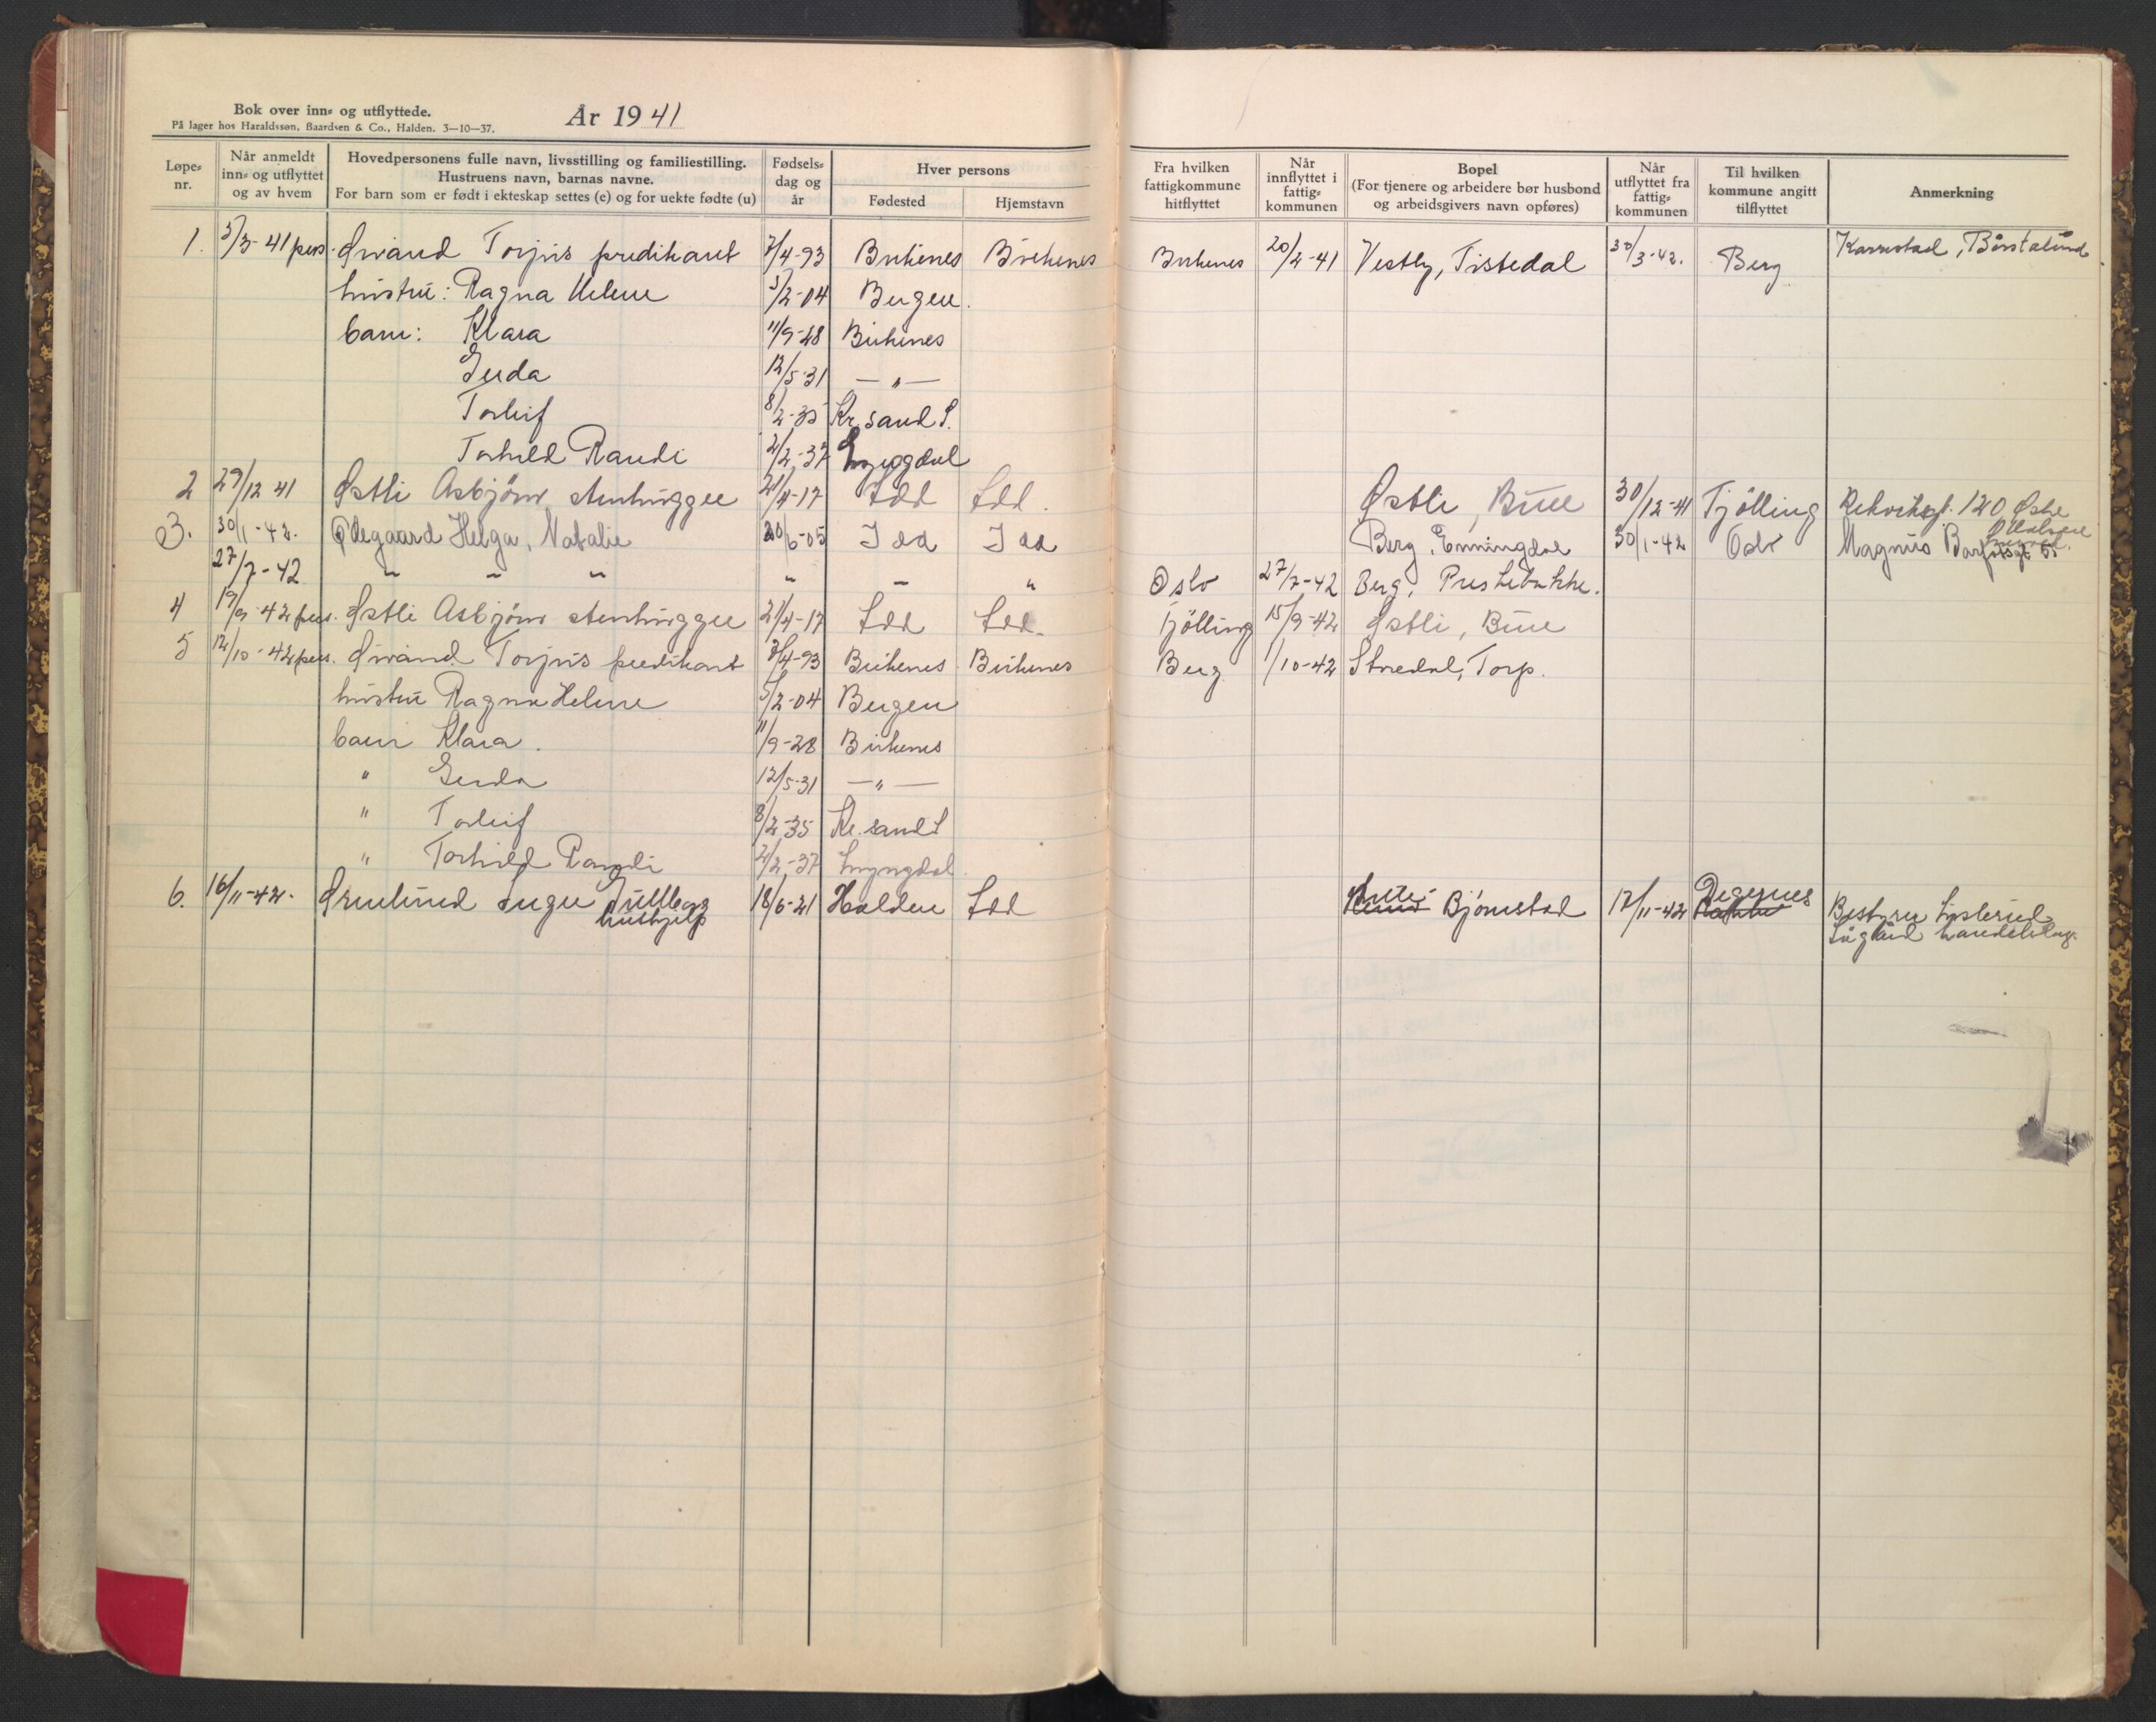 Bok over inn- og utflyttede.
På lager hos Haraldssøn, Baardsen & Co., Halden. 3—10—37.
År 1941
Løpe-nr.
Når anmeldt inn- og utflyttet og av hvem
Hovedpersonens fulle navn, livsstilling og familiestilling.
Hustruens navn, barnas navne.
For barn som er født i ekteskap settes (e) og for uekte fødte (u)
Fødsels-dag og år
Hver persons
Fødested
Hjemstavn
Fra hvilken fattigkommune hitflyttet
Når innflyttet i fattig-kommunen
Bopel
(For tjenere og arbeidere bør husbond og arbeidsgivers navn opføres)
Når utflyttet fra fattig-kommunen
Til hvilken kommune angitt tilflyttet
Anmerkning
1. 3/3-41 pers. Øivand Torjus predikant 7/4-93 Birkenes Birkenes Birkenes 20/2-41 Vestby, Tistedal 30/3-42. Berg
hustru: Ragna Helene 5/2-04 Bergen.
barn: Klara 11/9-28 Birkenes
Gerda 12/5-31 — " —
Torleif 8/2-35 Kr.sand S.
Torhild Randi 2/2-37 Lyngdal
2 29/12 41 Østli Asbjørn stenhugger 21/4-17 Idd Idd. Østli, Buer 30/12-41 Tjölling 120
3. 30/1-42. Ødegaard Helga, Natalie 20/6-05 Idd Idd Berg, Enningdal 30/1-42 Oslo Magnus Barfotsgt 5
27/7-42 " " " " " " Oslo 27/7-42 Berg, Prestebakke.
4 19/9 42 pers. Østli Asbjörn stenhugger 21/4-17 Idd Idd. Tjölling 15/9-42 Østli, Buer
5 12/10-42 pers. Øivand Torjus predikant 7/4-93 Birkenes Birkenes Berg 1/10-42 Stredal, Torp.
hustru Ragna Helene 5/2-04 Bergen
barn Klara. 11/9-28 Birkenes
" Gerda 12/5-31 — " —
" Torleif 8/2-35 Kr.sand S
" Torhild Randi 2/2-37 Lyngdal.
6. 16/11-42. Inger Gullborg 18/6-21 Halden Idd Bjørnstad 17/11-42 Degernes
hushjelp
Bestyrer
handelslag.